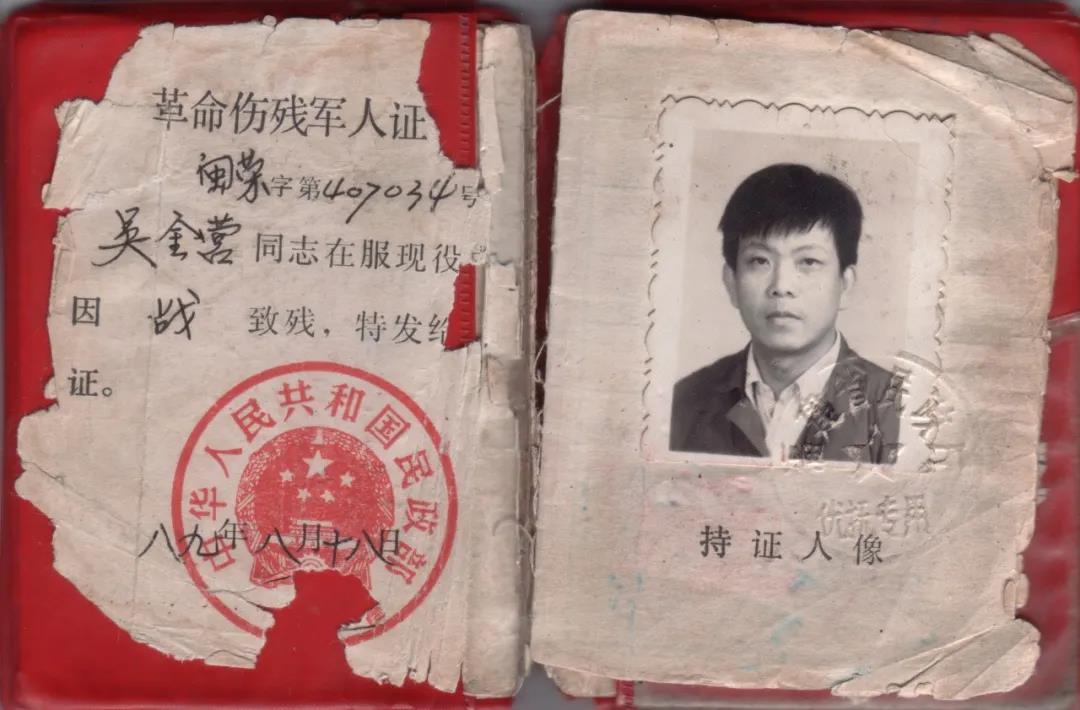 革命伤残军人证
闽荣字第407034号
吴金营同志在服现役
因战致残，特发给
证。
中华人民共和国民政部
八九年八月十八日
持证人像
省民政
优抚专用